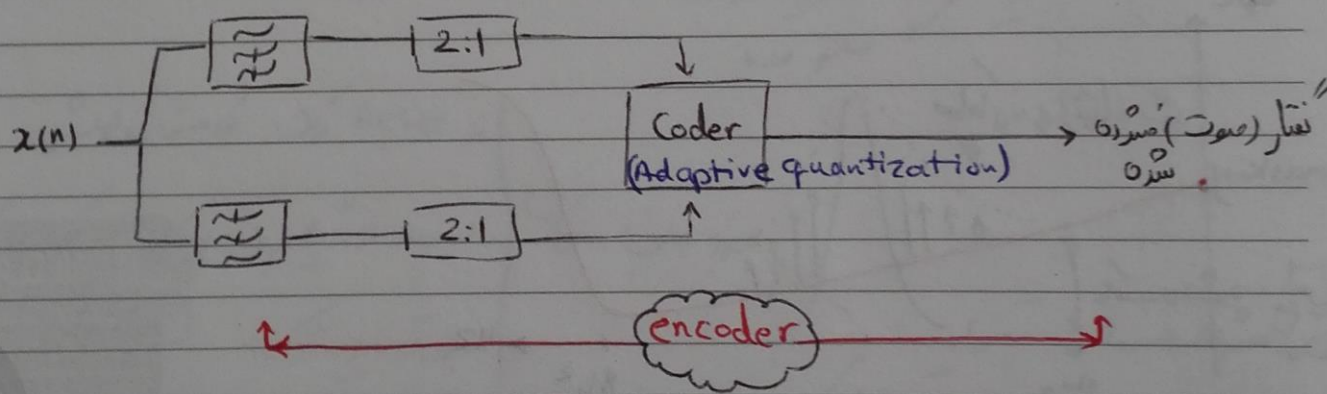 2:1
x(n)
Coder
(Adaptive quantization)
گفتار (صوت) فشرده
شده.
2:1
encoder